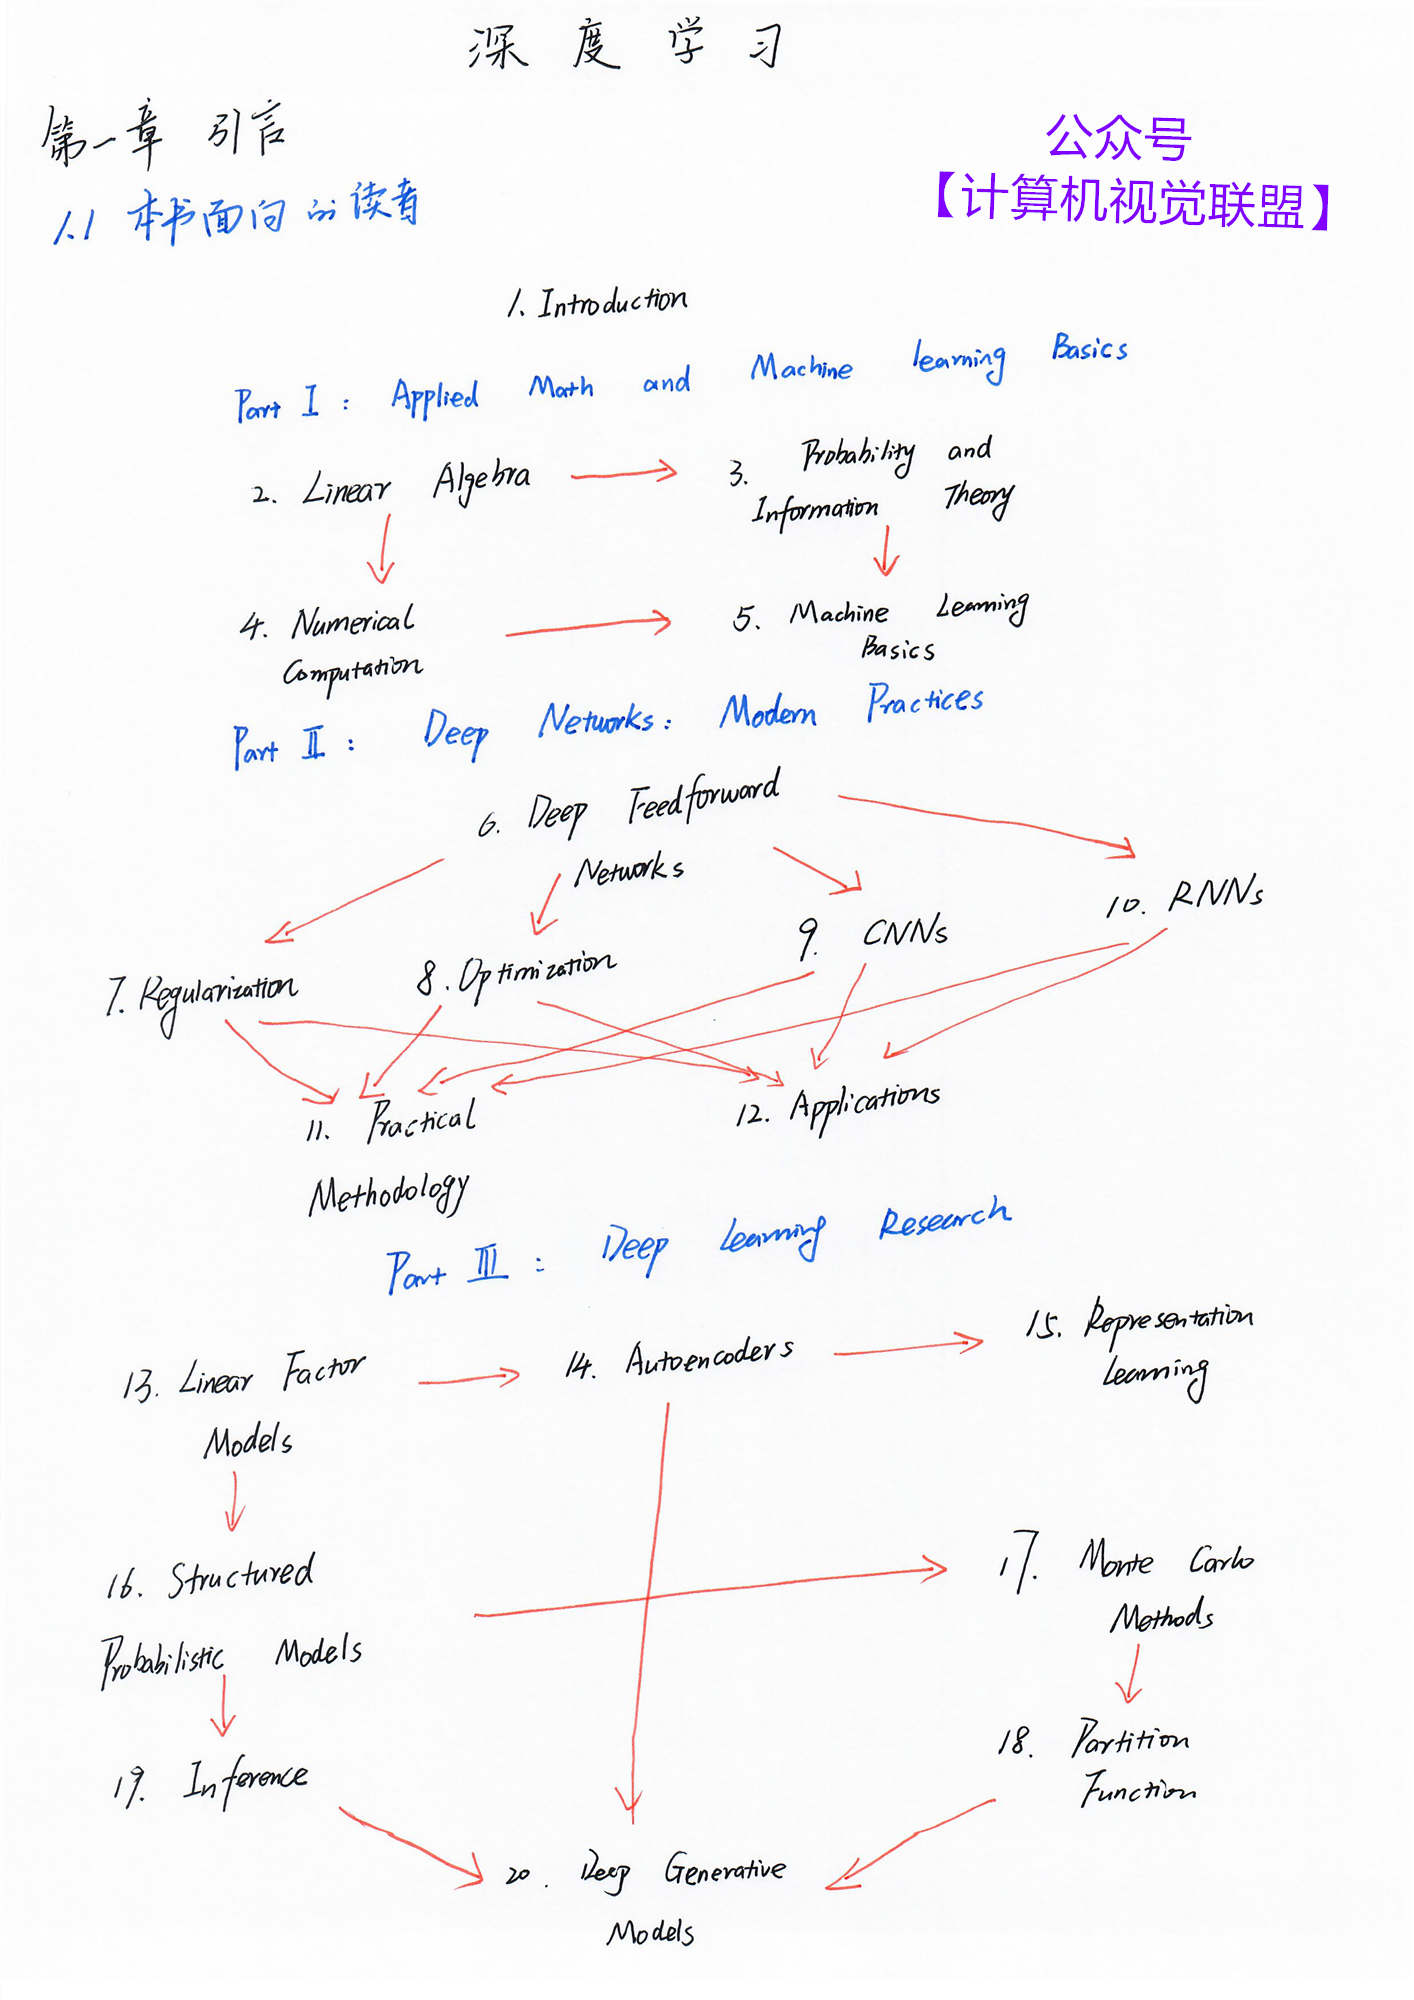 深度学习
第一章 引言
公众号
【计算机视觉联盟】
1.1 本书面向的读者
1. Introduction
Part I : Applied Math and Machine learning Basics
2. Linear Algebra
3. Probability and
Information Theory
4. Numerical
Computation
5. Machine Learning
Basics
Part II : Deep Networks: Modern Practices
6. Deep Feedforward
Networks
7. Regularization
8. Optimization
9. CNNs
10. RNNs
11. Practical
Methodology
12. Applications
Part III : Deep Learning Research
13. Linear Factor
Models
14. Autoencoders
15. Representation
Learning
16. Structured
Probabilistic Models
17. Monte Carlo
Methods
18. Partition
Function
19. Inference
20. Deep Generative
Models